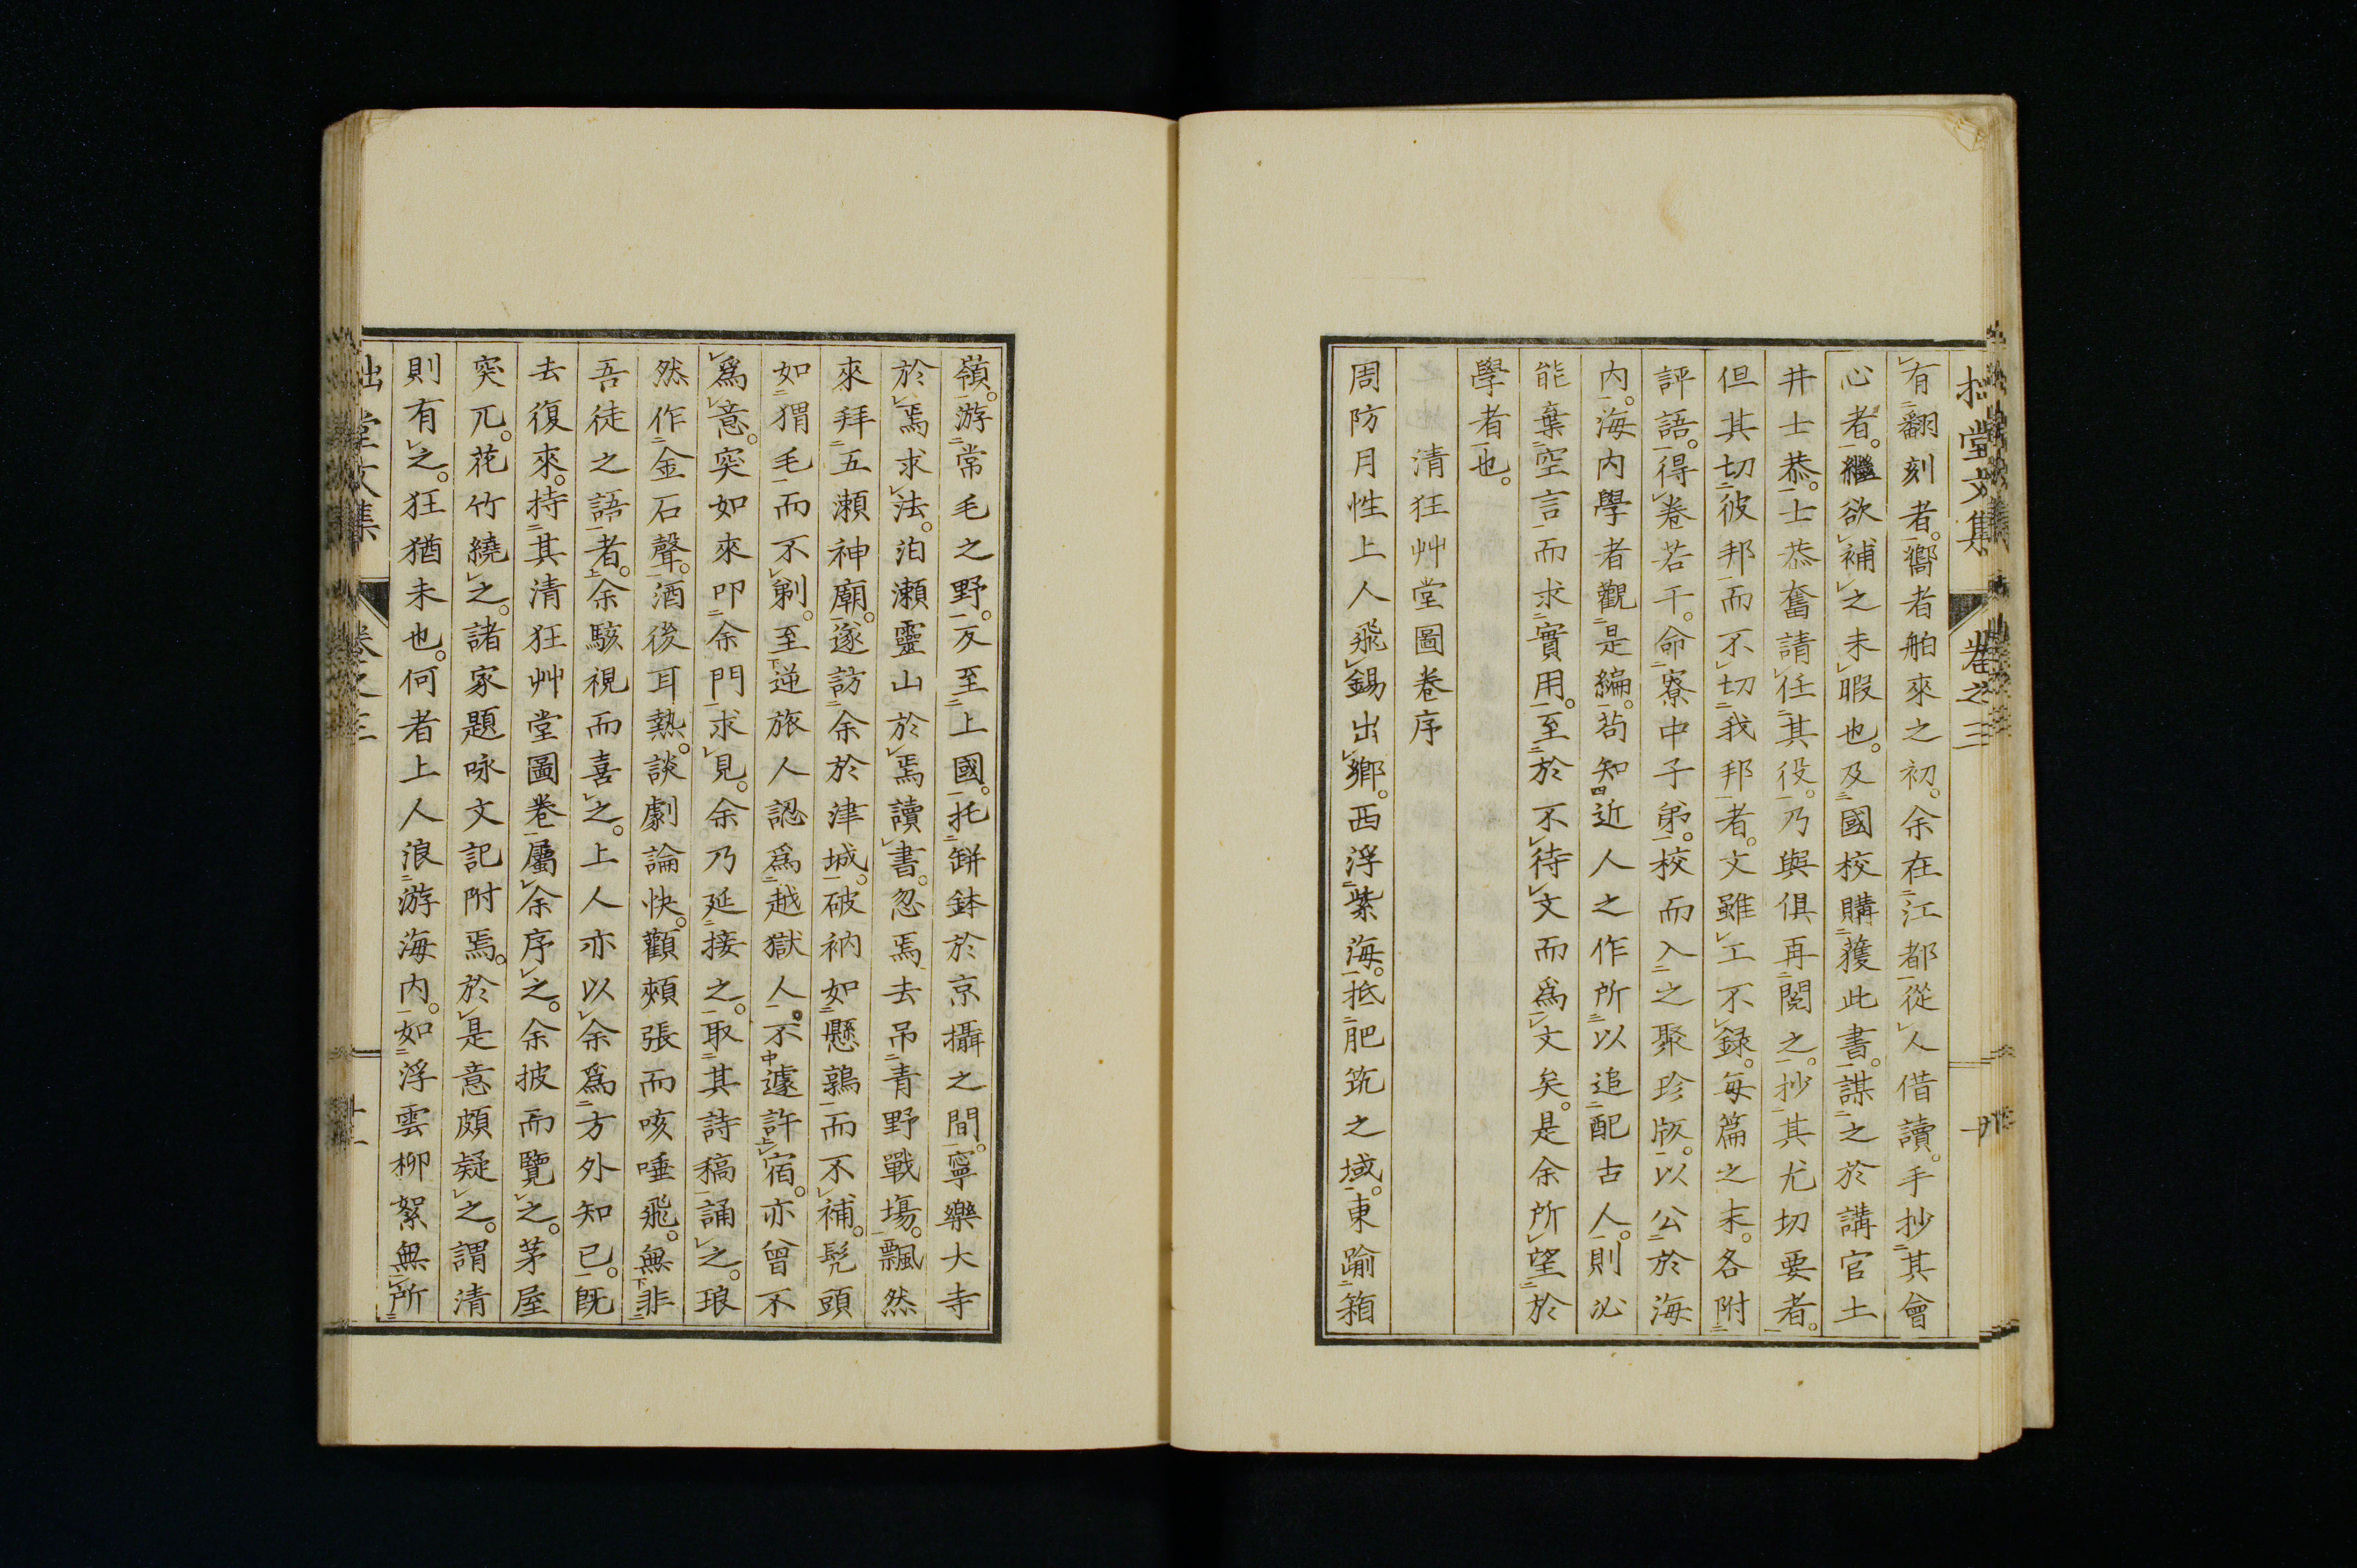 拙堂文集 卷之三 十
有翻刻者。嚮者舶來之初。余在江都從人借讀。手抄其會
心者。繼欲補之未暇也。及國校購獲此書。謀之於講官土
井士恭。士恭奮請任其役。乃與俱再閱之。抄其尤切要者。
但其切彼邦而不切我邦者。文雖工不錄。每篇之末。各附
評語。得卷若干。命寮中子弟。校而入之聚珍版。以公於海
内。海内學者觀是編。苟知近人之作所以追配古人。則必
能棄空言而求實用。至於不待文而爲文矣。是余所望於
學者也。
清狂艸堂圖卷序
周防月性上人飛錫出鄉。西浮紫海。抵肥筑之域。東踰箱
嶺。游常毛之野。反至上國。托缾鉢於京攝之間。寧樂大寺
於焉求法。泊瀨靈山於焉讀書。忽焉去吊青野戰場。飄然
來拜五瀨神廟。遂訪余於津城。破衲如懸鶉而不補。髡頭
如猬毛而不剃。至逆旅人認爲越獄人。不遽許宿。亦曾不
爲意。突如來叩余門求見。余乃延接之。取其詩稿誦之。琅
然作金石聲。酒後耳熱。談劇論快。顴頰張而咳唾飛。無非
吾徒之語者。余駭視而喜之。上人亦以余爲方外知已。既
去復來。持其清狂艸堂圖卷屬余序之。余披而覽之。茅屋
突兀。花竹繞之。諸家題咏文記附焉。於是意頗疑之。謂清
則有之。狂猶未也。何者上人浪游海内。如浮雲柳絮無所
堂文集 卷之三 十一